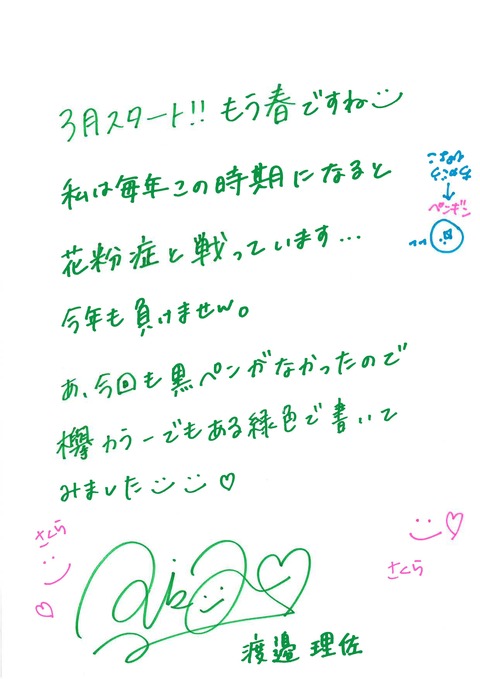 3月スタート!! もう春ですね
私は毎年この時期になると
花粉症と戦っています...
今年も負けません。
あ、今回も黒ペンがなかったので
欅カラーでもある緑色で書いて
みました
ペンギン
さくら
さくら
渡邉 理佐